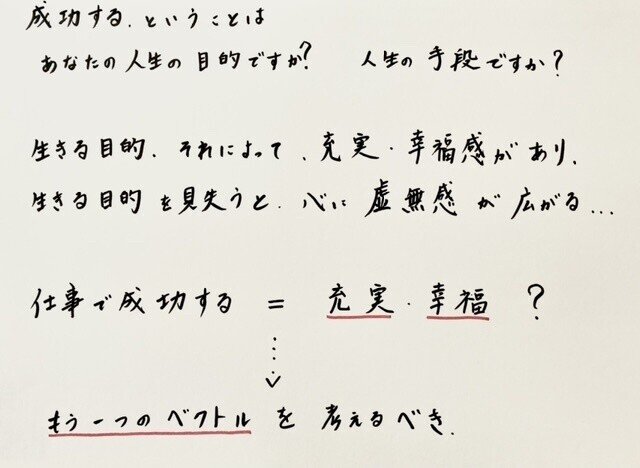 成功する、ということは
あなたの人生の目的ですか? 人生の手段ですか?
生きる目的、それによって、充実・幸福感があり、
生きる目的を見失うと、心に虚無感が広がる...
仕事で成功する = 充実・幸福?
もう一つのベクトルを考えるべき。